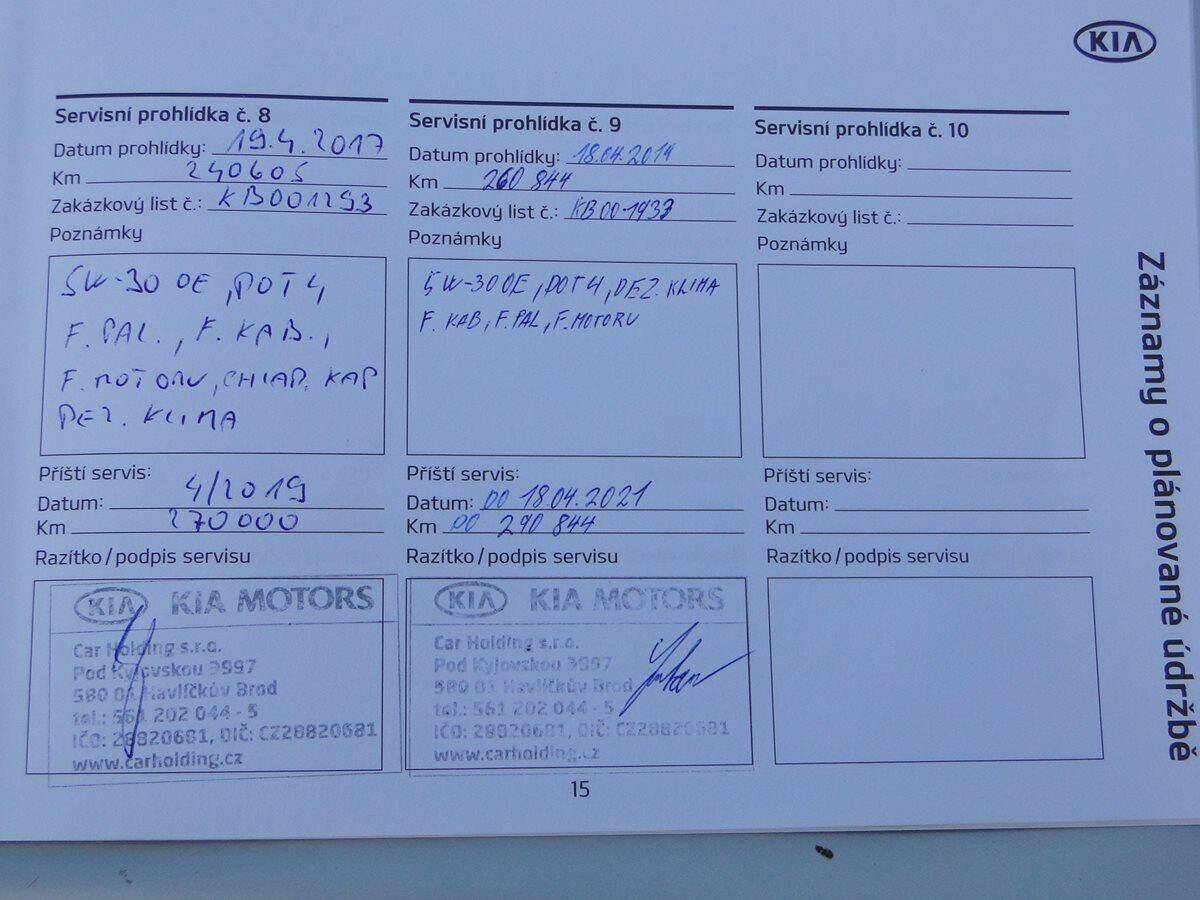 KIA
Servisní prohlídka č. 8
Datum prohlídky: 19.4.2017
Km 240605
Zakázkový list č.: KB001293
Poznámky
5W-30 OE, DOT 4,
F. PAL., F. KAB.,
F. MOTORU, CHLAD. KAP
DEZ. KLIMA
Příští servis:
Datum: 4/2019
Km 270000
Razítko/podpis servisu
KIA KIA MOTORS
Car Holding s.r.o.
Pod Kyjovskou 3997
580 01 Havlíčkův Brod
tel.: 561 202 044 - 5
IČO: 28820681, DIČ: CZ28820681
www.carholding.cz
Servisní prohlídka č. 9
Datum prohlídky: 18.04.2019
Km 260 844
Zakázkový list č.: KB00-1937
Poznámky
5W-30OE, DOT4, DEZ. KLIMA
F. KAB, F. PAL, F. MOTORU
Příští servis:
Datum: DO 18.04.2021
Km DO 290 844
Razítko/podpis servisu
KIA KIA MOTORS
Car Holding s.r.o.
Pod Kyjovskou 3997
580 01 Havlíčkův Brod
tel.: 561 202 044 - 5
IČO: 28820681, DIČ: CZ28820681
www.carholding.cz
Servisní prohlídka č. 10
Datum prohlídky:
Km
Zakázkový list č.:
Poznámky
Příští servis:
Datum:
Km
Razítko/podpis servisu
Záznamy o plánované údržbě
15